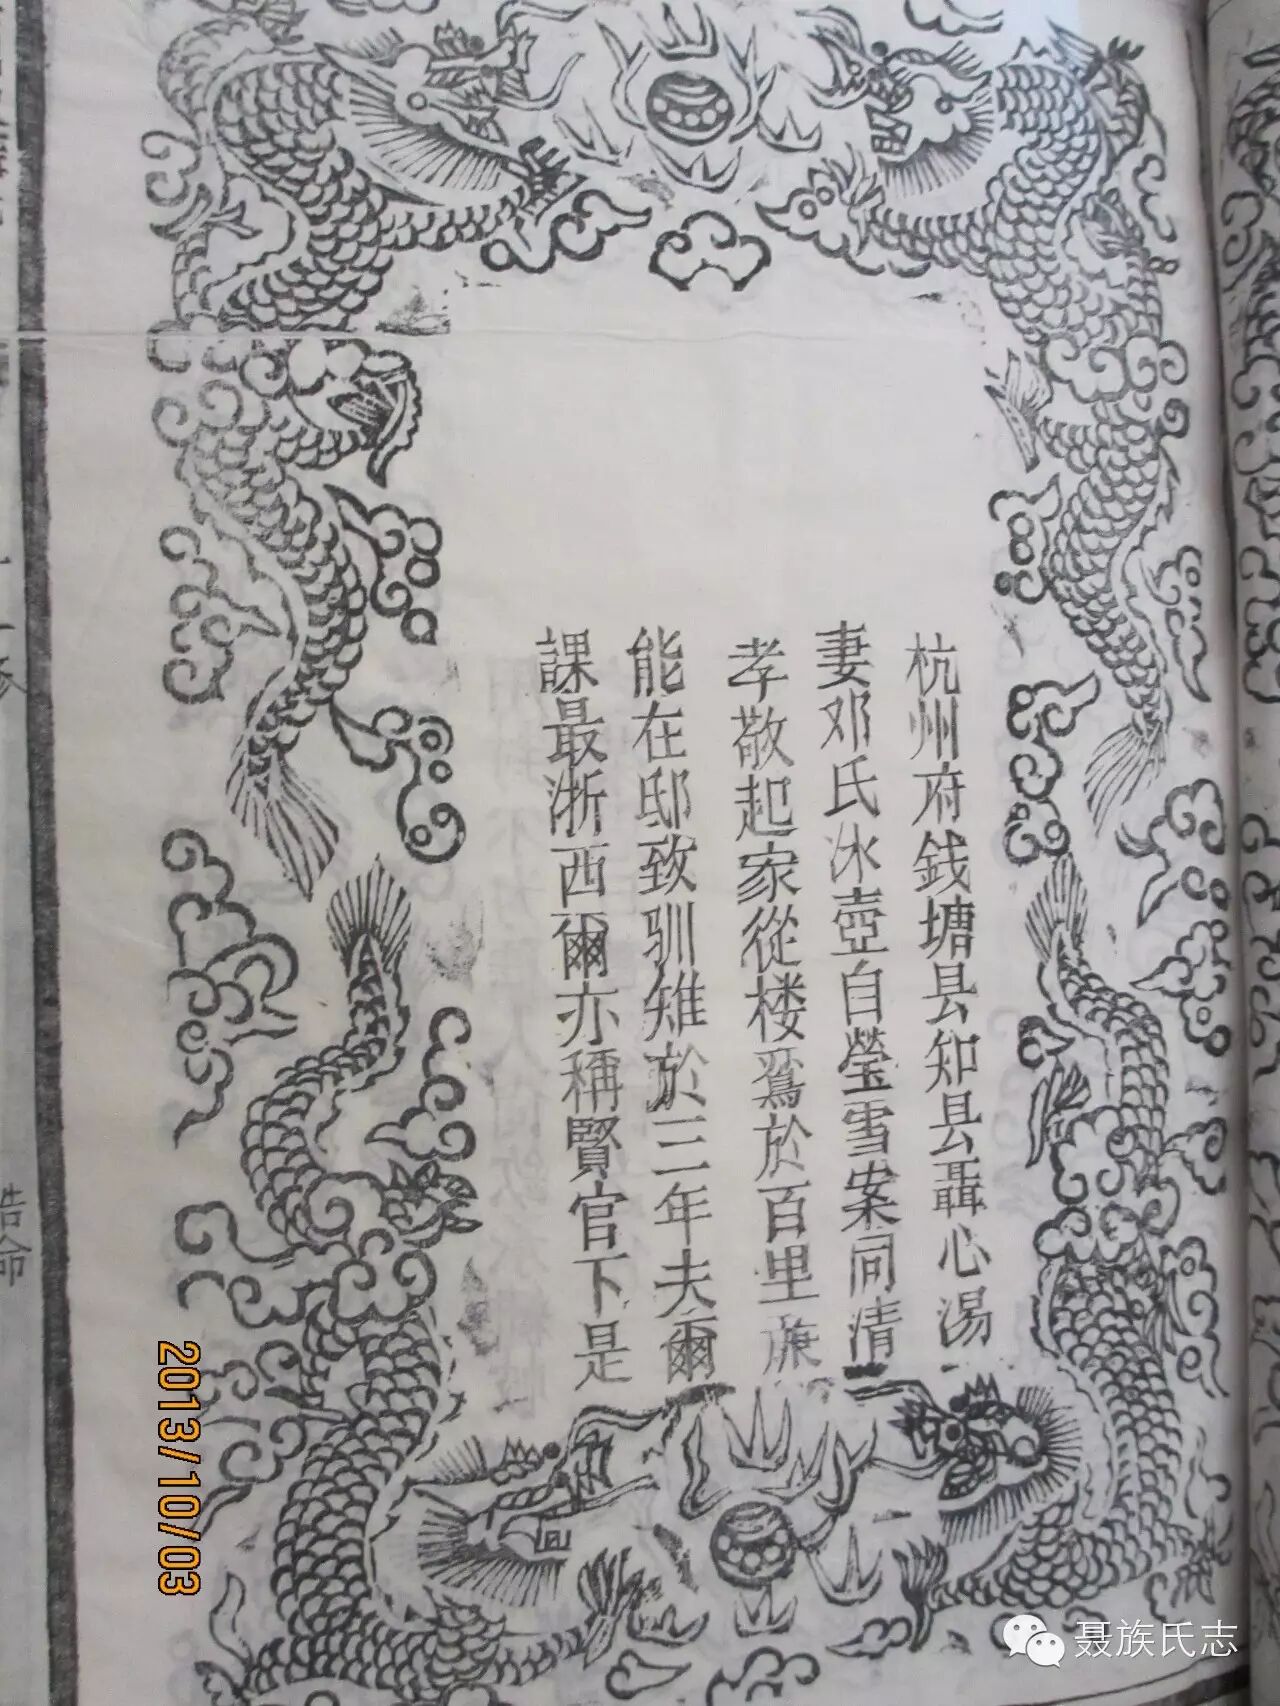 杭州府錢塘县知县聶心湯
妻邓氏冰壺自瑩雪案同清
孝敬起家從楼鳶於百里廉
能在邸致馴雉於三年夫爾
課最浙西爾亦稱賢官下是
誥命
2013/10/03
聂族氏志